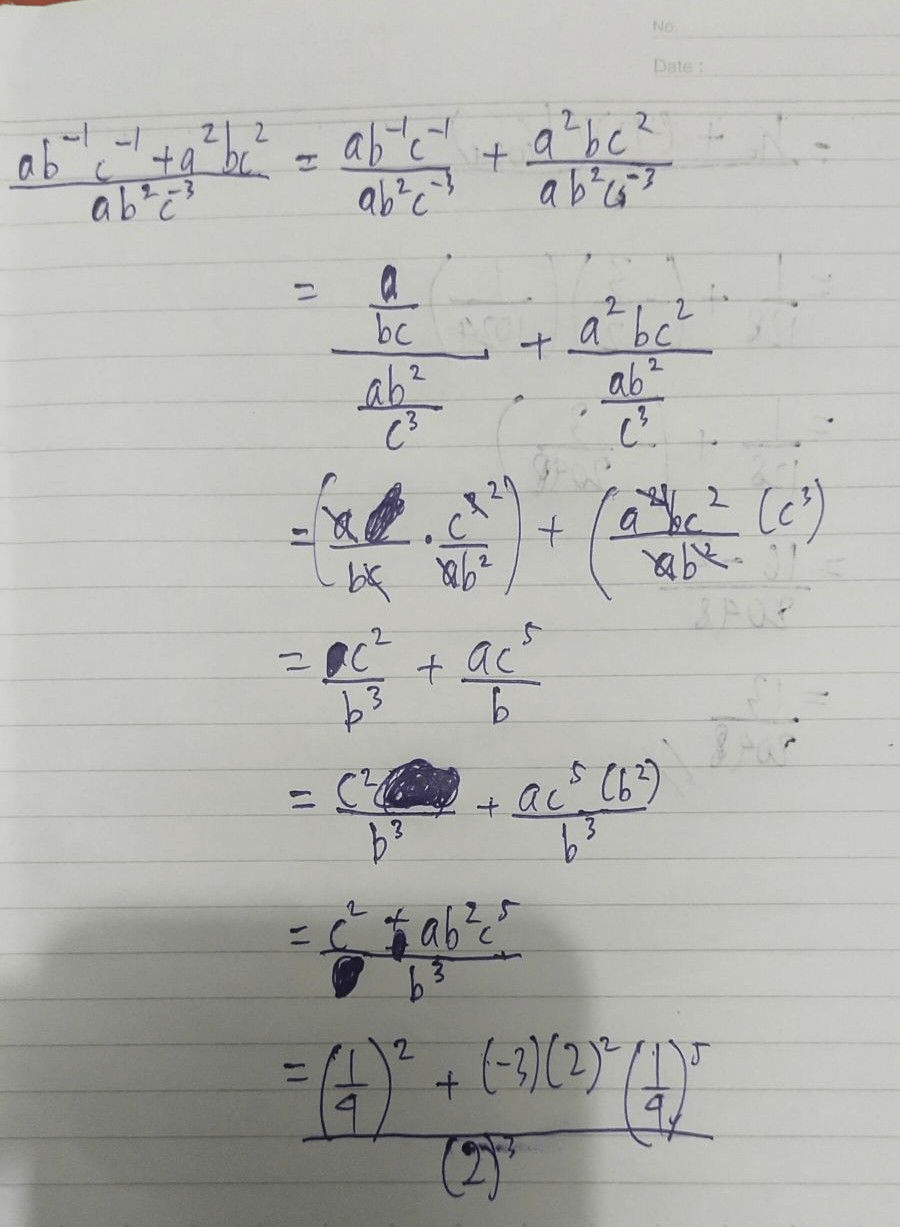 No.
Date :
(ab⁻¹c⁻¹ + a²bc²)/(ab²c⁻³) = (ab⁻¹c⁻¹)/(ab²c⁻³) + (a²bc²)/(ab²c⁻³)
= (a/(bc))/((ab²)/c³) + (a²bc²)/((ab²)/c³)
= (a/(bc) · c³²/(ab²)) + ((a²bc²)/(ab²) (c³)
= c²/b³ + ac⁵/b
= c²/b³ + (ac⁵(b²))/b³
= (c² + ab²c⁵)/b³
= ((1/4)² + (-3)(2)²(1/4)⁵)/(2)³